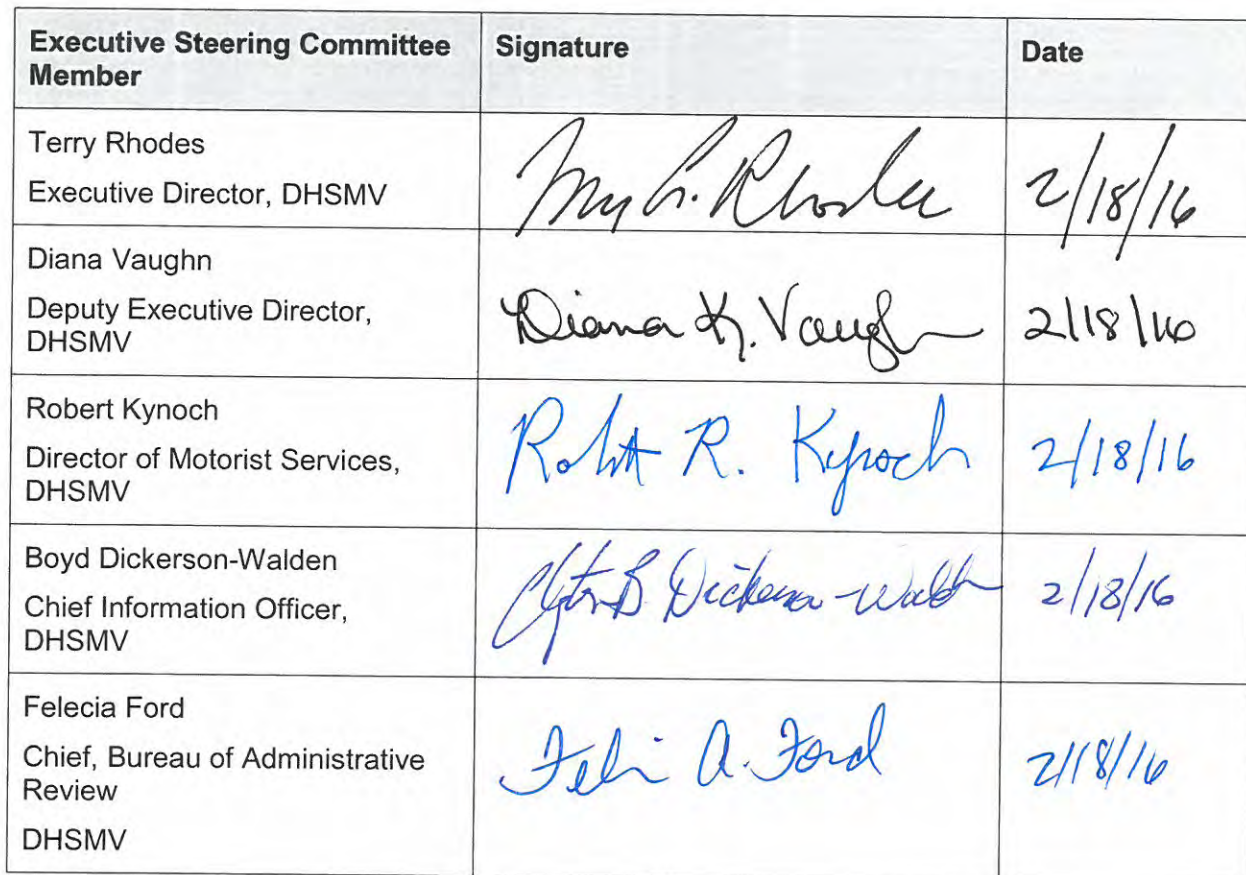 Executive Steering Committee
Member
Signature
Date
Terry Rhodes
Executive Director, DHSMV
Rhodes
2/18/16
Diana Vaughn
Deputy Executive Director,
DHSMV
Diana K. Vaughn
2/18/16
Robert Kynoch
Director of Motorist Services,
DHSMV
Robert R. Kynoch
2/18/16
Boyd Dickerson-Walden
Chief Information Officer,
DHSMV
B Dickerson-Walden
2/18/16
Felecia Ford
Chief, Bureau of Administrative
Review
DHSMV
A. Ford
2/18/16